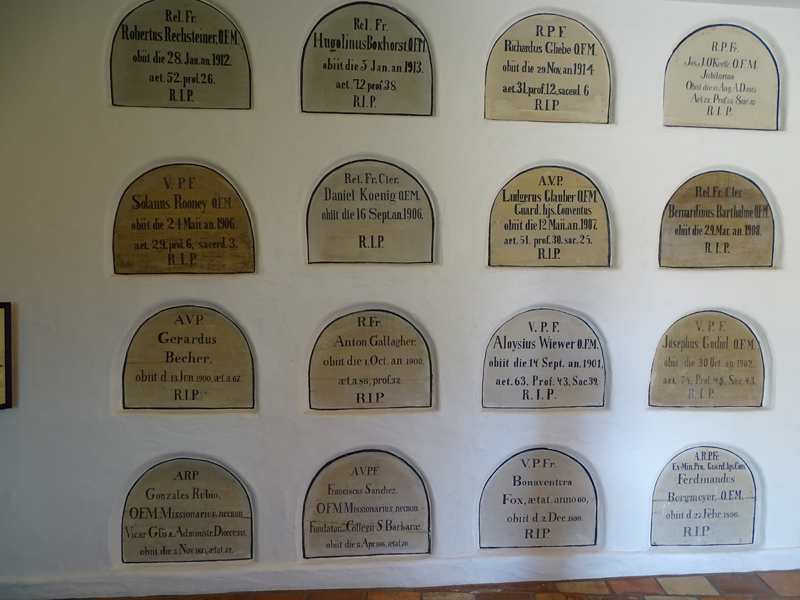 Rel. Fr.
Robertus Rechsteiner, O.F.M.
obiit die 28. Jan. an. 1912.
aet. 52. prof. 26.
R.I.P.
Rel. Fr.
Hugolinus Bokhorst O.F.M.
obiit die 5 Jan. an 1913.
aet. 72 prof 38.
R.I.P.
R.P.F.
Richardus Gliebe O.F.M.
obiit die 29 Nov. an 1914
aet. 31, prof. 12, sacerd 6
R.I.P.
R.P. Fr.
Jos. J O'Keefe O.F.M.
Jubilarius
Obiit die Aug A.D. 1915
R.I.P.
V.P.F.
Solanus Rooney O.F.M.
obiit die 24 Maii, an 1906.
aet. 29, prof. 6, sacerd. 3.
R.I.P.
Rel. Fr. Cler.
Daniel Koenig O.F.M.
obiit die 16 Sept. an. 1906.
R.I.P.
A.V.P.
Ludgerus Glauber O.F.M.
Guard. hjs. Conventus
obiit die 12 Maii, an 1907.
aet. 51. prof. 30. sac. 25.
R.I.P.
Rel. Fr. Cler.
Bernardinus Bartholme O.F.M.
obiit die 29. Mar. an 1908.
R.I.P.
A.V.P.
Gerardus
Becher.
obiit d. 13 Jun. 1900, æt. a. 67.
R.I.P
R. Fr.
Anton Gallagher,
obiit die 1. Oct. an 1900,
æt. a. 86, prof. 32.
R.I.P
V.P.F.
Aloysius Wiewer O.F.M.
obiit die 14 Sept. an 1901,
aet. 63, Prof. 43, Sac. 39.
R.I.P.
V.P.F.
Josephus Godiol O.F.M.
obiit die 30 Oct an 1902.
aet. 74, Prof. 48, Sac. 43.
R.I.P.
A.R.P.
Gonzales Rubio,
O.F.M. Missionarius, necnon
Vicar Glis & Administr. Diœcesis,
obiit die 3 Nov. 1875, ætat.
A.V.P.F.
Franciscus Sanchez,
O.F.M. Missionarius, necnon
Fundator Collegii S. Barbaræ
obiit die Apr. ætat.
V.P. Fr.
Bonaventura
Fox, ætat. anno 60,
obiit d. 2. Dec. 1896.
R.I.P
A.R.P. Fr.
Ex-Min. Pro. Guard. hjs. Con.
Ferdinandus
Bergmeyer, O.F.M.
obiit d. 27. Febr. 1896.
R.I.P